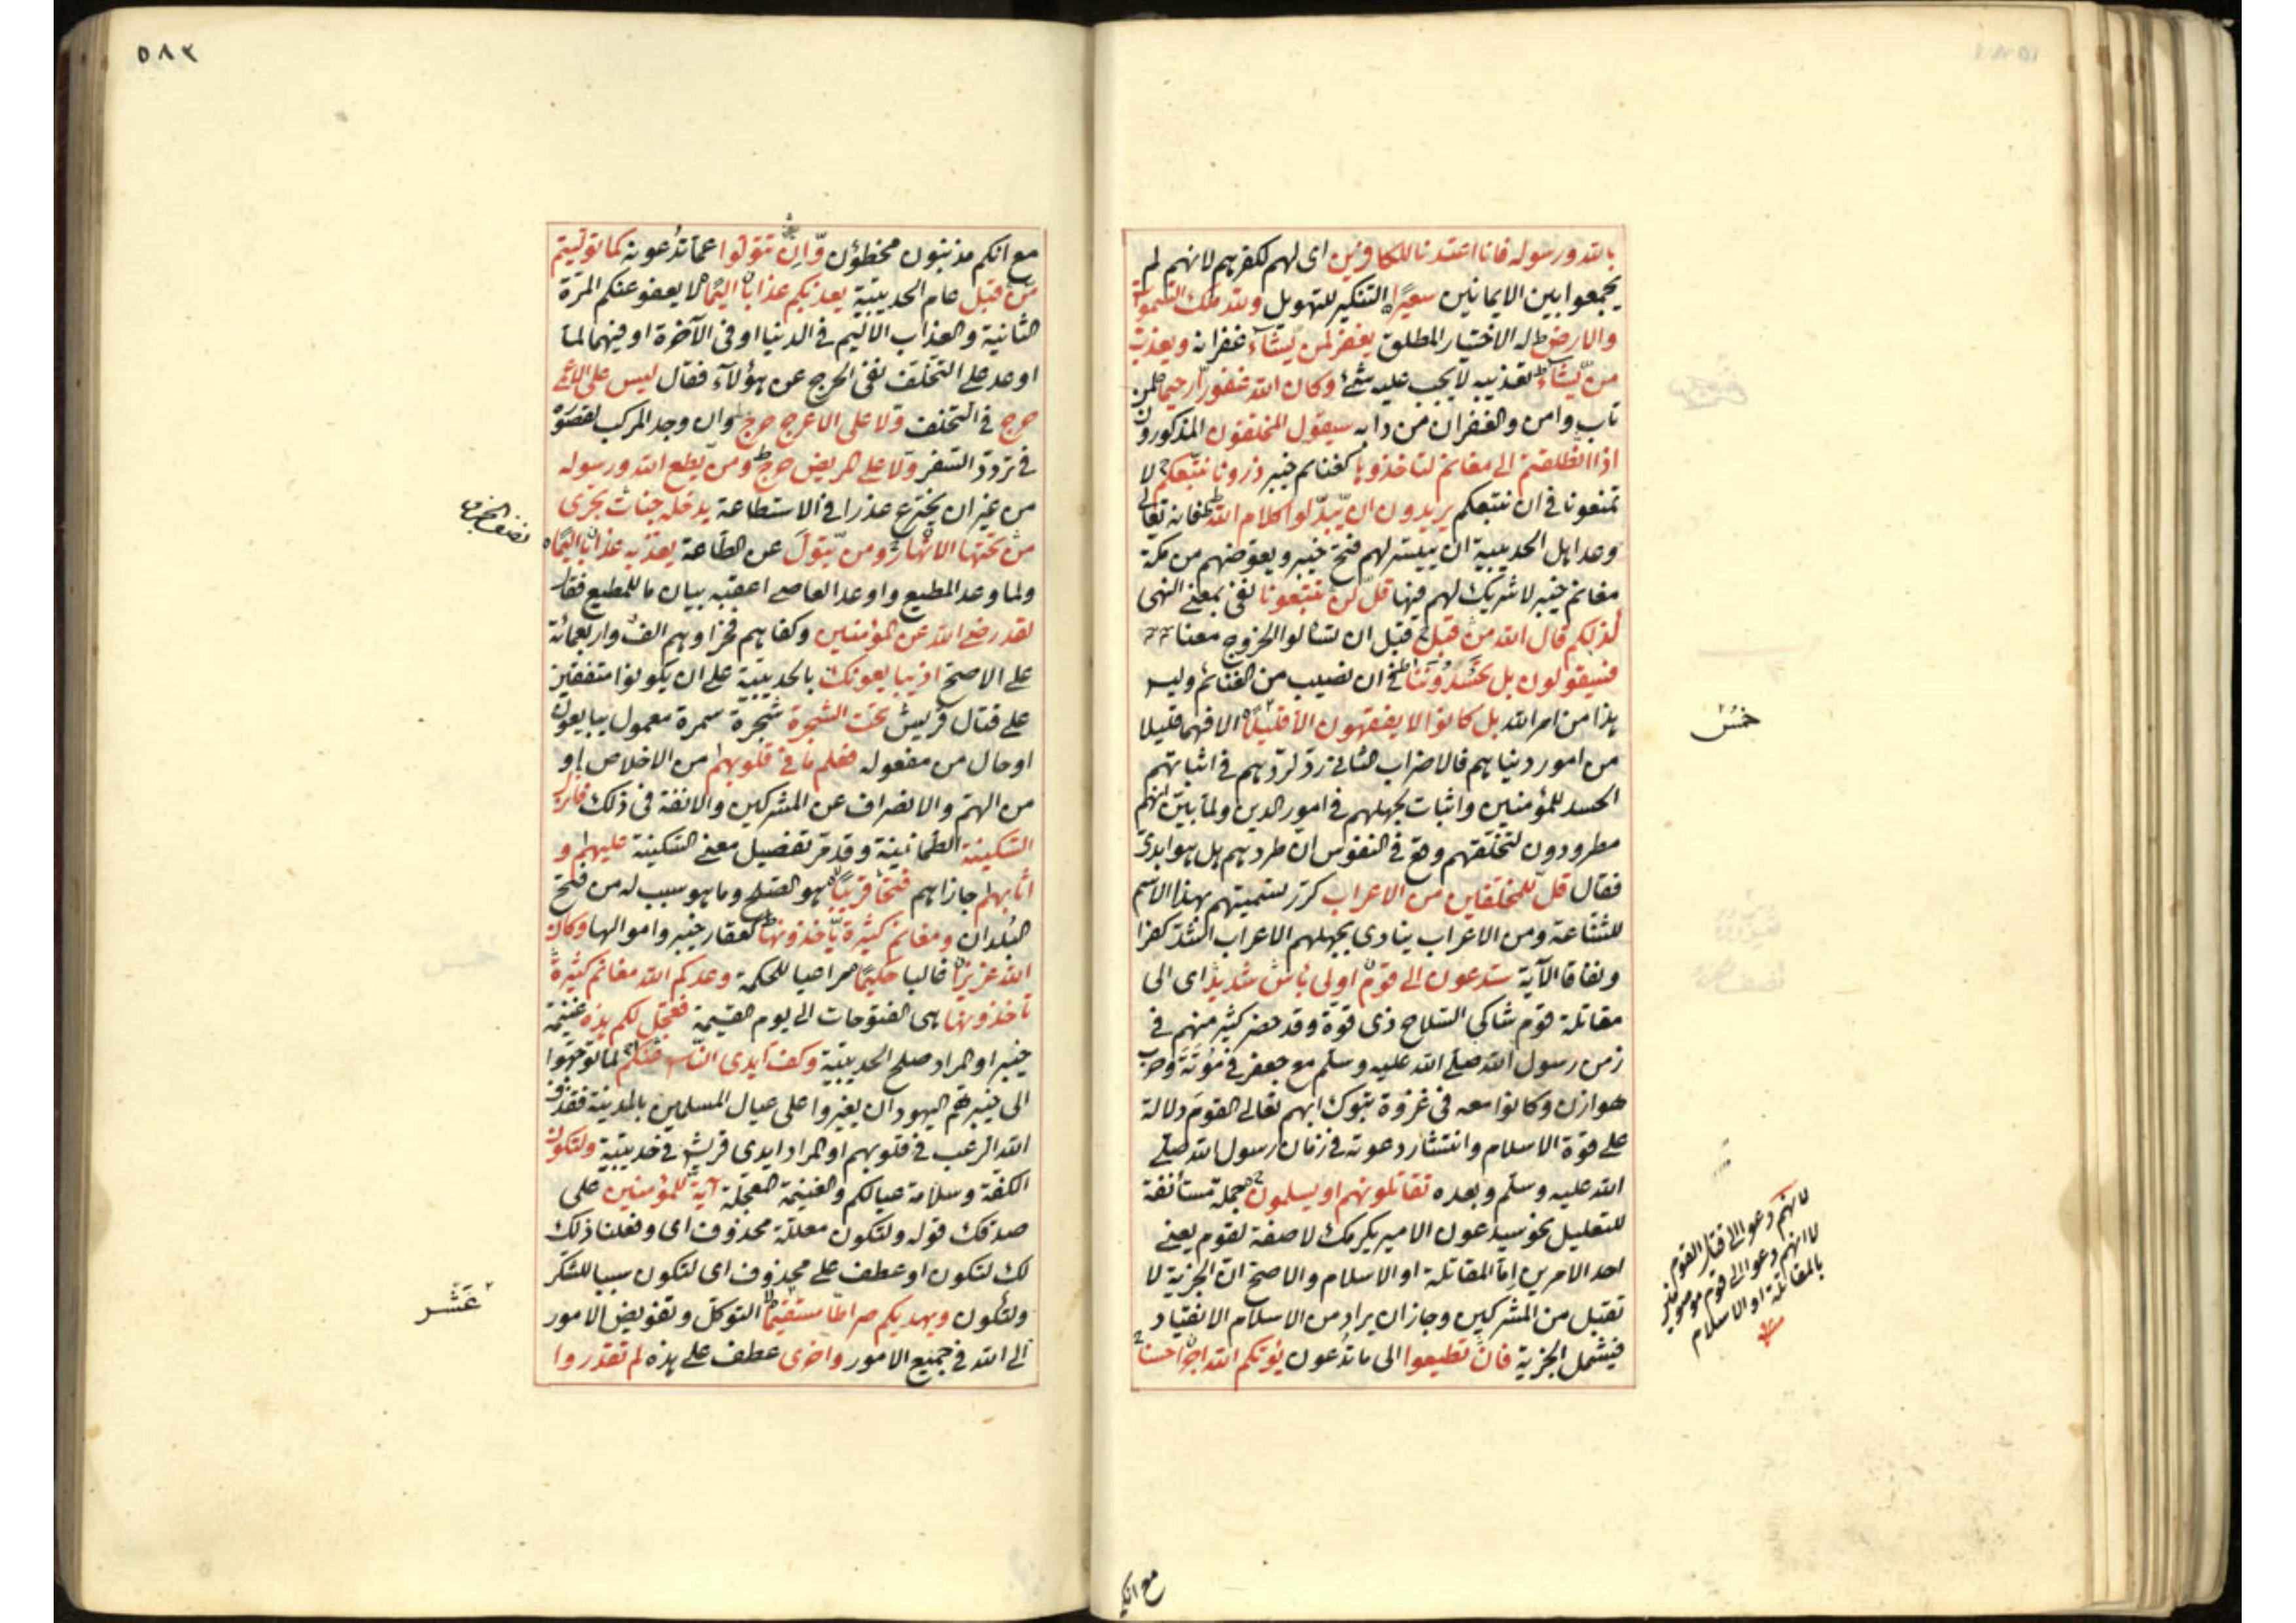 بالله ورسوله فانا اعتدنا للكافرين اى لهم لكفرهم لانهم لم
يجمعوا بين الايمانين سعيرا التنكير للتهويل ولله ملك السموات
والارض له الاختيار المطلق يغفر لمن يشآء غفرانه ويعذب
من يشآء تعذيبه لا يجب عليه شئ وكان الله غفورا رحيما لمن
تاب وامن والغفران من دابه سيقول المخلفون المذكورون
اذا انطلقتم الى مغانم لتاخذوها كغنائم خيبر ذرونا نتبعكم لا
تمنعونا فى ان نتبعكم يريدون ان يبدلوا كلام الله فانه تعالى
وعد اهل الحديبية ان ييسر لهم فتح خيبر ويعوضهم من مكة
مغانم خيبر لا شريك لهم فيها قل لن تتبعونا نفى بمعنى النهى
كذلكم قال الله من قبل قبل ان تسالوا الخروج معنا
فسيقولون بل تحسدوننا فى ان نصيب من الغنائم وليس
هذا من امر الله بل كانوا لا يفقهون الا قليلا الا فهما قليلا
من امور دنياهم فالاضراب الثانى رد لردهم فى اثباتهم
الحسد للمؤمنين واثبات لجهلهم فى امور الدين ولما بين انهم
مطرودون لتخلفهم وقع فى النفوس ان طردهم هل هو ابدى
فقال قل للمخلفين من الاعراب كرر تسميتهم بهذا الاسم
للشناعة ومن الاعراب ينادى بجهلهم الاعراب اشد كفرا
ونفاقا الآية ستدعون الى قوم اولى باس شديد اى الى
مقاتلة قوم شاكى السلاح ذى قوة وقد حضر كثير منهم فى
زمن رسول الله صلى الله عليه وسلم مع جعفر فى موتة وحرب
هوازن وكانوا معه فى غزوة تبوك ابهم تعالى القوم دلالة
على قوة الاسلام وانتشار دعوته فى زمان رسول الله صلى
الله عليه وسلم وبعده تقاتلونهم او يسلمون جملة مستأنفة
للتعليل نحو سيدعون الامير يكرمك لا صفة لقوم يعنى
احد الامرين اما المقاتلة او الاسلام والاصح ان الجزية لا
تقبل من المشركين وجاز ان يراد من الاسلام الانقياد
فيشمل الجزية فان تطيعوا الى ما تدعون يؤتكم الله اجرا حسنا
خمس
لانهم دعوا الى قتال القوم
لا انهم دعوا الى قوم موصوفين
بالمقاتلة او الاسلام
مع انكم
٥٨٢
مع انكم مذنبون مخطؤن وان تتولوا عما تدعون كما توليتم
من قبل عام الحديبية يعذبكم عذابا اليما لا يعفو عنكم المرة
الثانية والعذاب الاليم فى الدنيا او فى الآخرة او فيهما لما
اوعد على التخلف نفى الحرج عن هؤلآء فقال ليس على الاعمى
حرج فى التخلف ولا على الاعرج حرج وان وجد المركب لقصوره
فى تردد السفر ولا على المريض حرج ومن يطع الله ورسوله
من غير ان يخترع عذرا فى الاستطاعة يدخله جنات تجرى
من تحتها الانهار ومن يتول عن الطاعة يعذبه عذابا اليما
ولما وعد المطيع واوعد العاصى اعقبه ببيان ما للمطيع فقال
لقد رضى الله عن المؤمنين وكفاهم فخرا وهم الف واربعمائة
على الاصح اذ يبايعونك بالحديبية على ان يكونوا متفقين
على قتال قريش تحت الشجرة شجرة سمرة معمول يبايعون
او حال من مفعوله فعلم ما فى قلوبهم من الاخلاص او
من الهم والانصراف عن المشركين والانفة فى ذلك فانزل
السكينة الطمانينة وقد مر تفصيل معنى السكينة عليهم و
اثابهم جازاهم فتحا قريبا هو الصلح وما هو سبب له من فتح
البلدان ومغانم كثيرة يأخذونها كعقار خيبر واموالها وكان
الله عزيزا غالبا حكيما مراعيا للحكمة وعدكم الله مغانم كثيرة
تأخذونها هى الفتوحات الى يوم القيمة فعجل لكم هذه غنيمة
خيبر او المراد صلح الحديبية وكف ايدى الناس عنكم لما توجهوا
الى خيبر هم اليهود ان يغيروا على عيال المسلمين بالمدينة فقذف
الله الرعب فى قلوبهم او المراد ايدى قريش فى حديبية ولتكون
الكفة وسلامة عيالكم والغنيمة المعجلة آية للمؤمنين على
صدقك قوله ولتكون معللة محذوف اى وفعلنا ذلك
لك لتكون او عطف على محذوف اى لتكون سببا للشكر
ولتكون ويهديكم صراطا مستقيما التوكل وتفويض الامور
الى الله فى جميع الامور واخرى عطف على هذه لم تقدروا
نصف الحزب
عشر